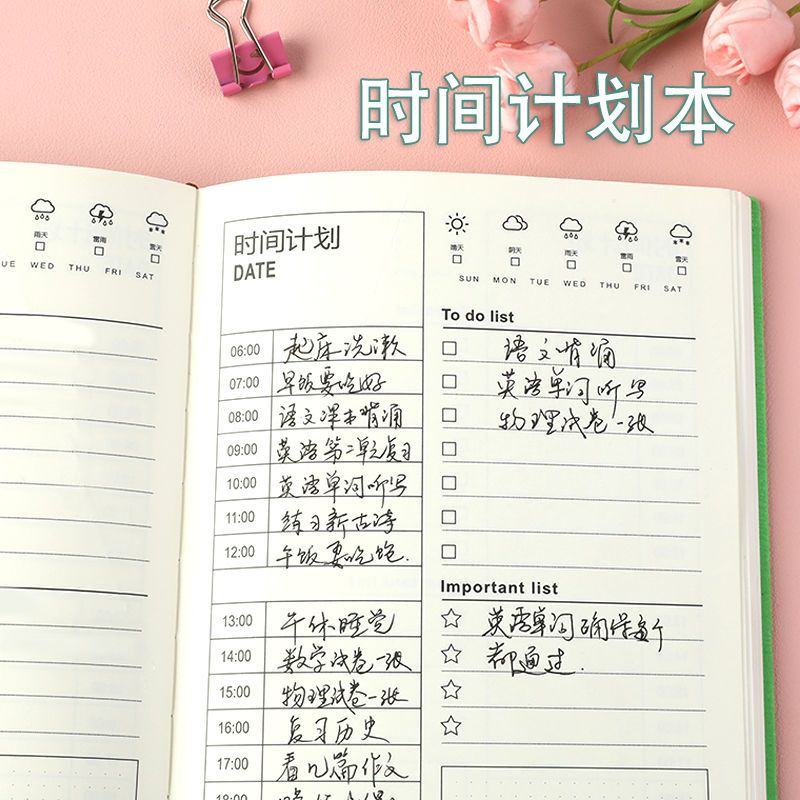 时间计划本
雨天 雷雨 雪天
UE WED THU FRI SAT
时间计划
DATE
晴天 阴天 雨天 雷雨 雪天
SUN MON TUE WED THU FRI SAT
06:00 起床洗漱
07:00 早饭要吃好
08:00 语文课本背诵
09:00 英语第二单元复习
10:00 英语单词听写
11:00 练习新古诗
12:00 午饭要吃饱.
13:00 午休睡觉
14:00 数学试卷一张
15:00 物理试卷一张
16:00 复习历史
17:00 看几篇作文
18:00
To do list
语文背诵
英语单词听写
物理试卷一张
Important list
英语单词确保每个
都通过.